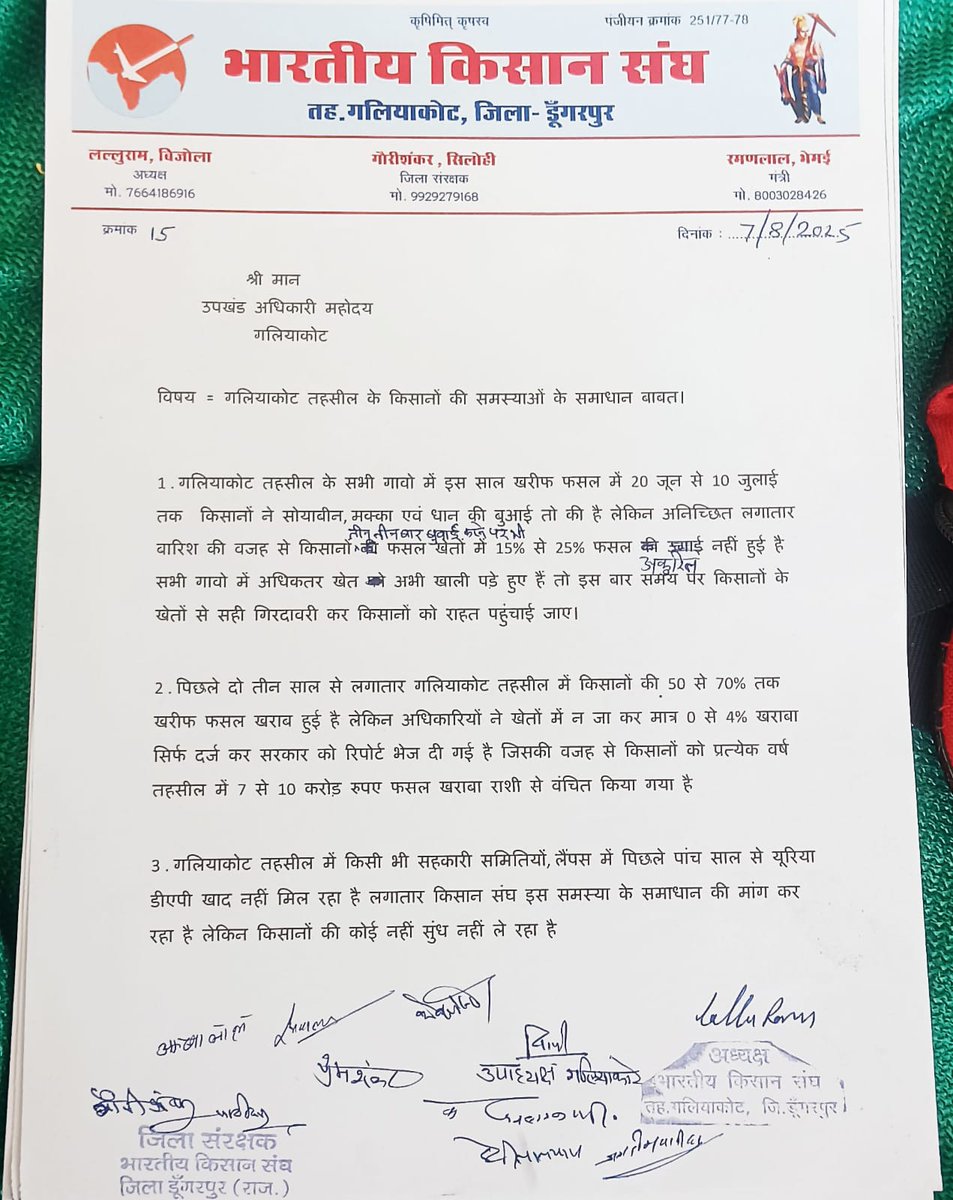 कृषिमित् कृषस्व
पंजीयन क्रमांक 251/77-78
भारतीय किसान संघ
तह.गलियाकोट, जिला- डूँगरपुर
लल्लुराम, विजोला
अध्यक्ष
मो. 7664186916
गौरीशंकर , सिलोही
जिला संरक्षक
मो. 9929279168
रमणलाल, भेमई
मंत्री
मो. 8003028426
क्रमांक 15
दिनांक : 7/8/2025
श्री मान
उपखंड अधिकारी महोदय
गलियाकोट
विषय = गलियाकोट तहसील के किसानों की समस्याओं के समाधान बाबत।
1.गलियाकोट तहसील के सभी गावो में इस साल खरीफ फसल में 20 जून से 10 जुलाई
तक किसानों ने सोयाबीन,मक्का एवं धान की बुआई तो की है लेकिन अनिच्छित लगातार
तीन तीन बार बुवाई करने पर भी
बारिश की वजह से किसानों की फसल खेतों में 15% से 25% फसल नहीं हुई है
अंकुरित
सभी गावो में अधिकतर खेत अभी खाली पड़े हुए हैं तो इस बार समय पर किसानों के
खेतों से सही गिरदावरी कर किसानों को राहत पहुंचाई जाए।
2.पिछले दो तीन साल से लगातार गलियाकोट तहसील में किसानों की 50 से 70% तक
खरीफ फसल खराब हुई है लेकिन अधिकारियों ने खेतों में न जा कर मात्र 0 से 4% खराबा
सिर्फ दर्ज कर सरकार को रिपोर्ट भेज दी गई है जिसकी वजह से किसानों को प्रत्येक वर्ष
तहसील में 7 से 10 करोड़ रुपए फसल खराबा राशी से वंचित किया गया है
3.गलियाकोट तहसील में किसी भी सहकारी समितियों,लैंपस में पिछले पांच साल से यूरिया
डीएपी खाद नहीं मिल रहा है लगातार किसान संघ इस समस्या के समाधान की मांग कर
रहा है लेकिन किसानों की कोई नहीं सुंध नहीं ले रहा है
Lallu Ram
प्रेमशंकर
उपाध्यक्ष गलियाकोट
अध्यक्ष
भारतीय किसान संघ
तह.गलियाकोट, जि.डूँगरपुर
जिला संरक्षक
भारतीय किसान संघ
जिला डूँगरपुर (राज.)